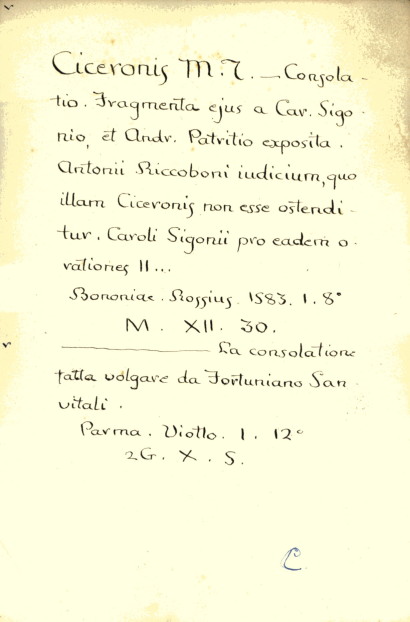 Ciceronis M. T. — Consola-
tio. Fragmenta ejus a Car. Sigo-
nio, et Andr. Patritio exposita.
Antonii Riccoboni iudicium, quo
illam Ciceronis non esse ostendi-
tur. Caroli Sigonii pro eadem o-
rationes II...
Bononiae. Rossius. 1583. 1. 8°
M. XII. 30.
— La consolatione
fatta volgare da Fortuniano San
vitali.
Parma. Viotto. 1. 12°
2G. X. S.
C